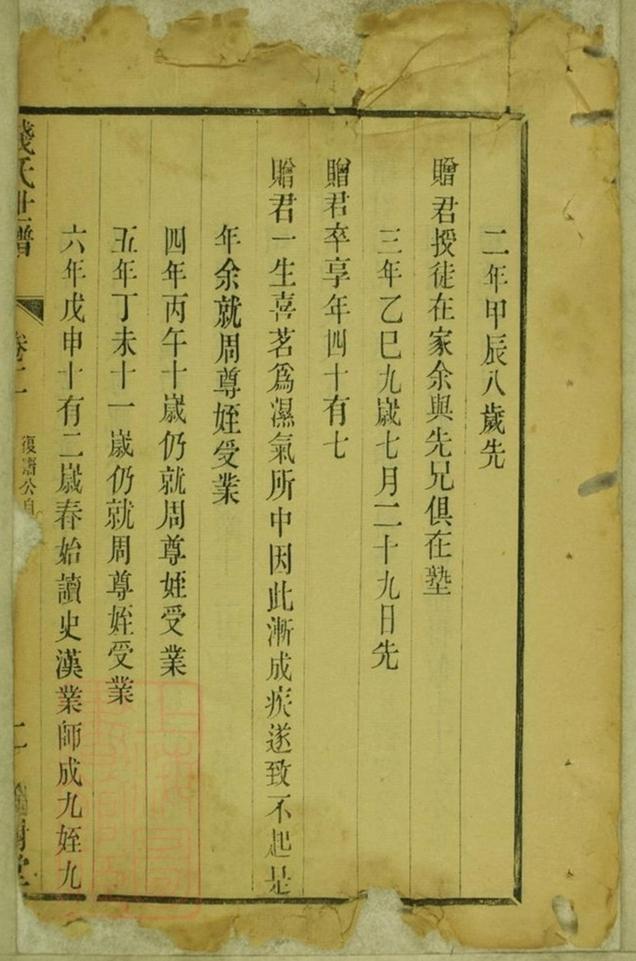 二年甲辰八歲先
贈君授徒在家余與先兄俱在塾
三年乙巳九歲七月二十九日先
贈君卒享年四十有七
贈君一生喜茗爲濕氣所中因此漸成疾遂致不起是
年余就周尊姪受業
四年丙午十歲仍就周尊姪受業
五年丁未十一歲仍就周尊姪受業
六年戊申十有二歲春始讀史漢業師成九姪九
錢氏世譜
卷二
復齋公自
二
樹堂